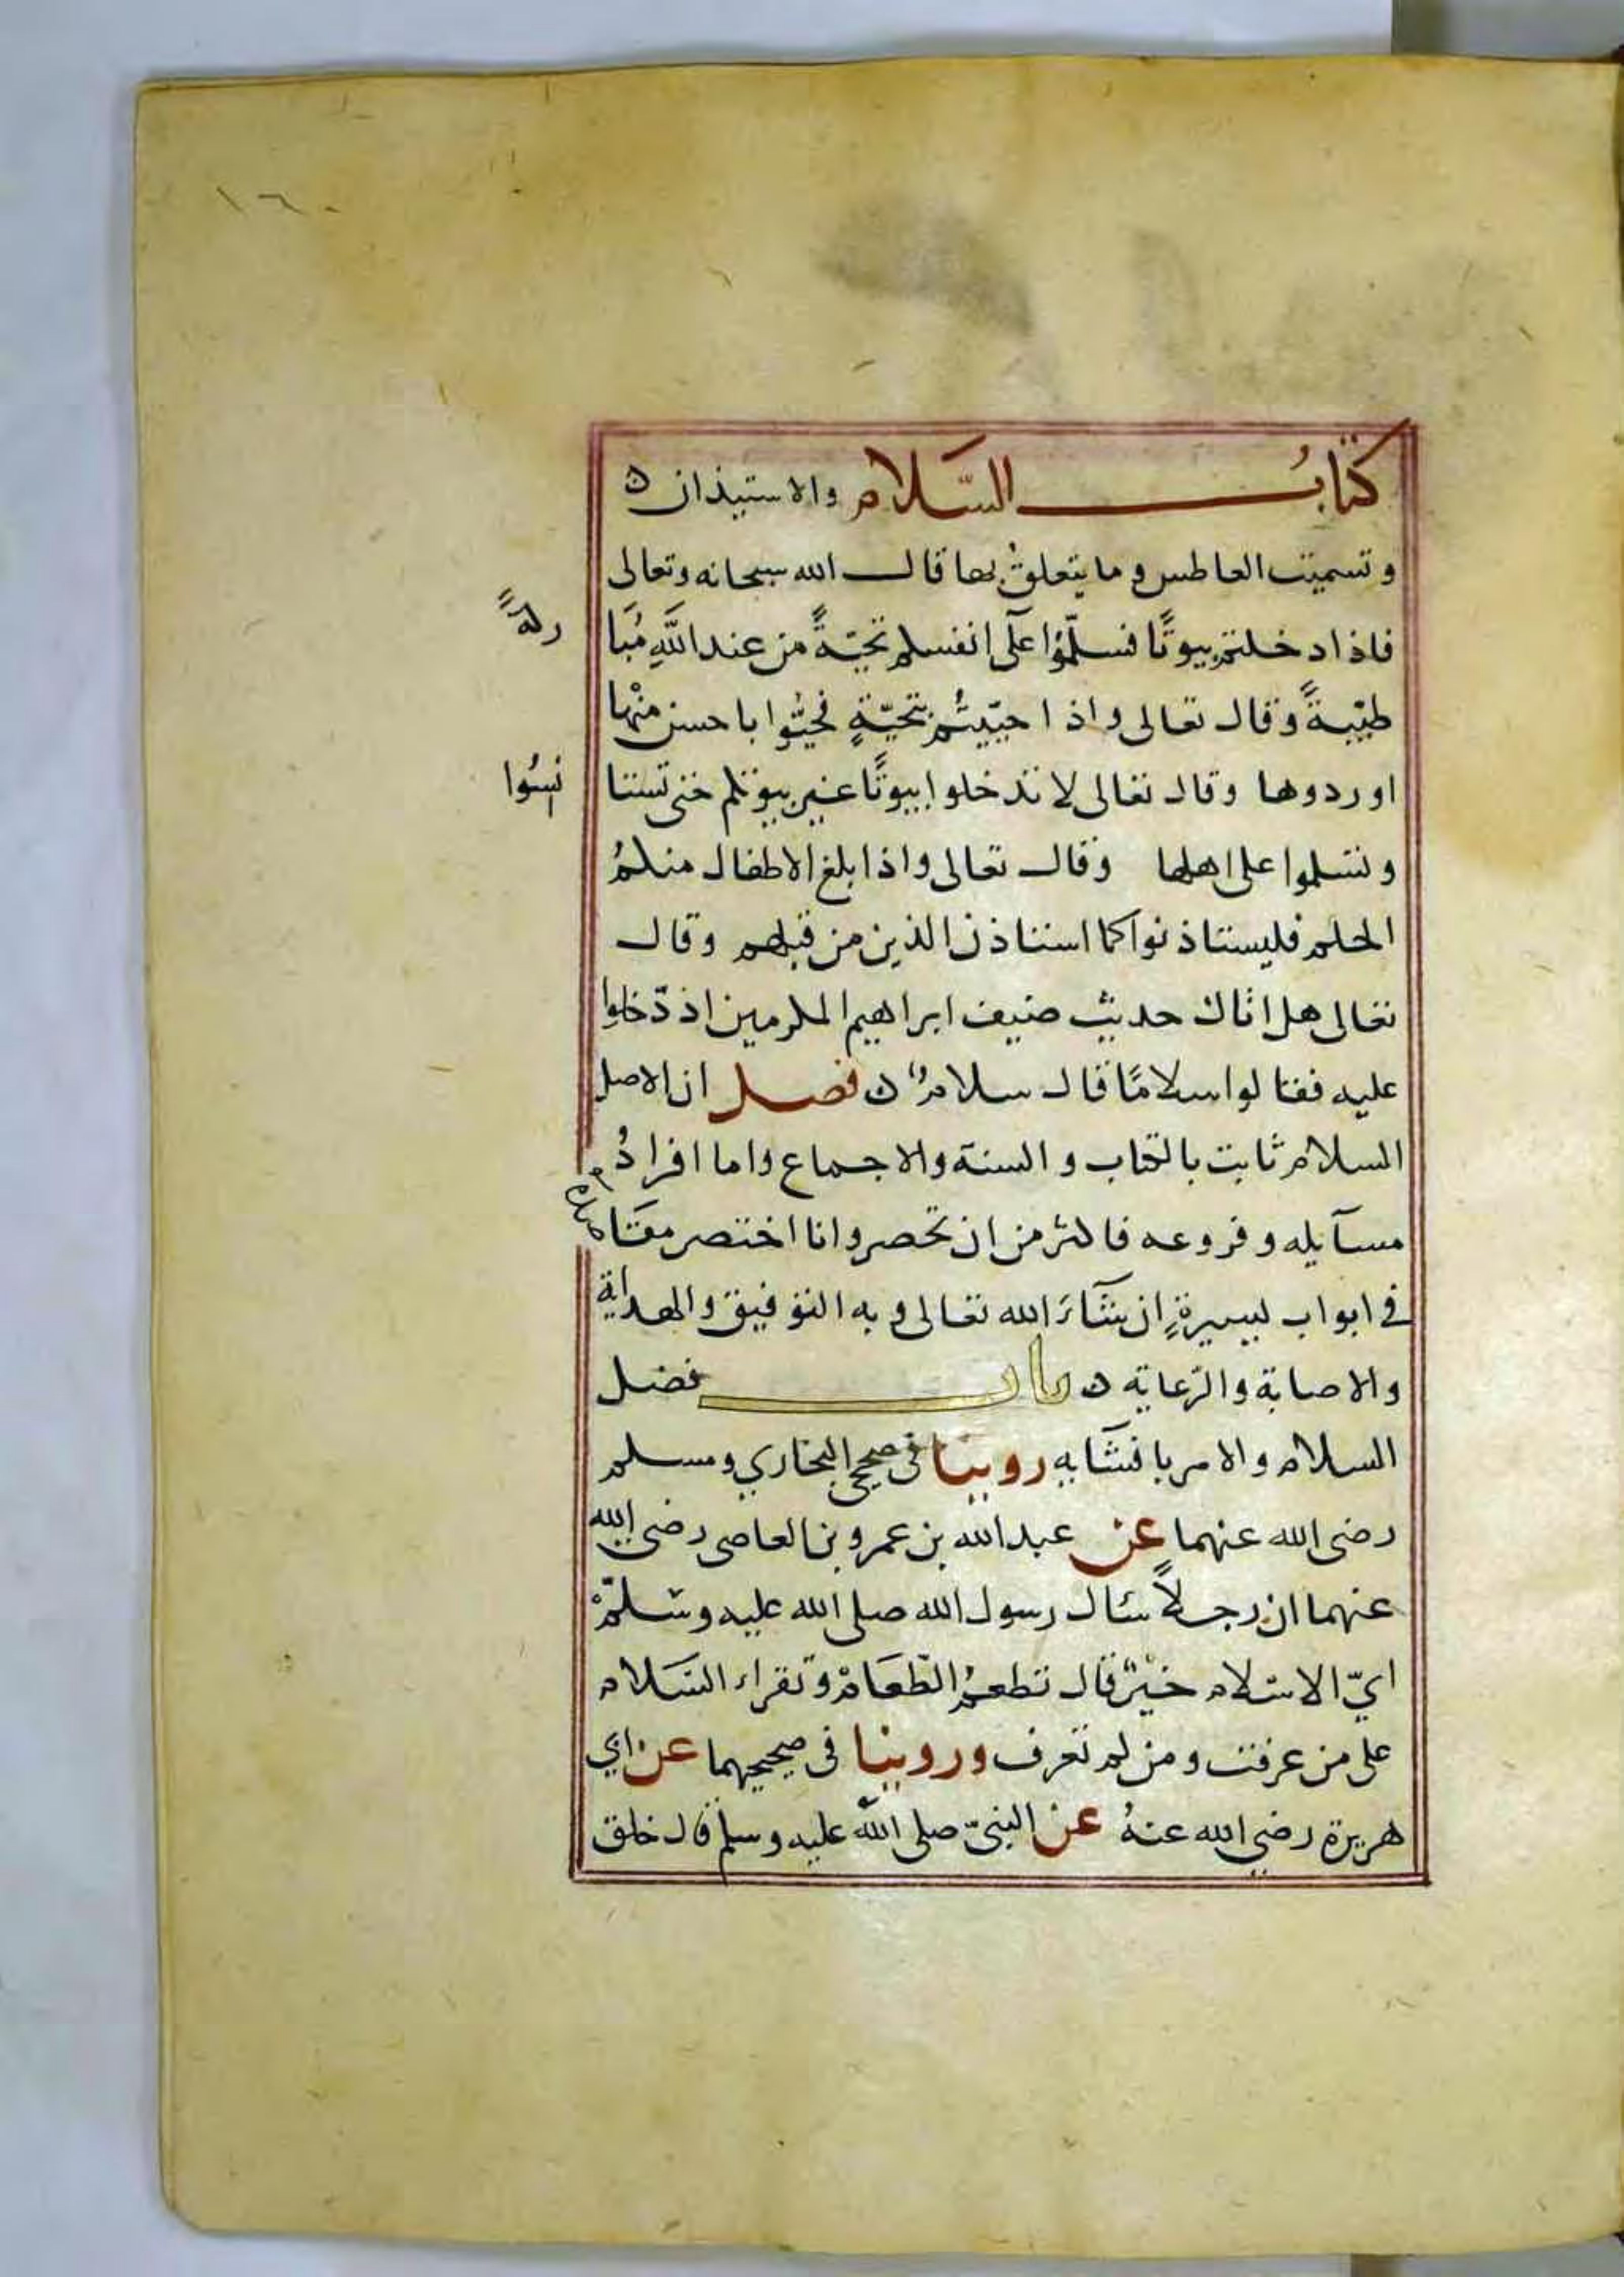 ١٦٠
كتاب السَّلام والاستيذان ه
وتسميت العاطس وما يتعلق بها قال الله سبحانه وتعالى
فاذا دخلتم بيوتًا فسلّموا على انفسكم تحيّةً من عند اللَّهِ مُبَا
ركةً
طيّبةً وقال تعالى واذا حيّيتُم بتحيّةٍ فحيُّوا باحسن منْها
او ردوها وقال تعالى لا تدخلوا بيوتًا غير بيوتكم حتى تستا
نسُوا
وتسلموا على اهلها وقال تعالى واذا بلغ الاطفال منكمُ
الحلم فليستاذنوا كما استاذن الذين من قبلهم وقال
تعالى هل اتاك حديث ضيف ابراهيم المكرمين اذ دّخلوا
عليه فقالوا سلامًا قال سلامٌ ه فصل ان الاصل
السلام ثابت بالكتاب والسنة والاجماع واما افرادُ
مسآيله وفروعه فاكثر من ان تحصر وانا اختصر مقَاصده
في ابواب يسيرةٍ ان شآءَ الله تعالى وبه التوفيق والهداية
والاصابة والرّعاية ه باب فضل
السلام والامر بافشآيه روينا فى صحيحى البخاري ومسلم
رضى الله عنهما عن عبد الله بن عمرو بن العاصى رضى الله
عنهما ان رجلاً سئال رسول الله صلى الله عليه وسَلّمْ
ايّ الاسْلام خيْرٌ قال تطعمُ الطّعَامْ وتقراء السَلام
على من عرفت ومن لم تعرف وروينا فى صحيحيهما عن ابي
هريرة رضي الله عنهُ عن النبىّ صلى اللَّه عليه وسلم قال خلق